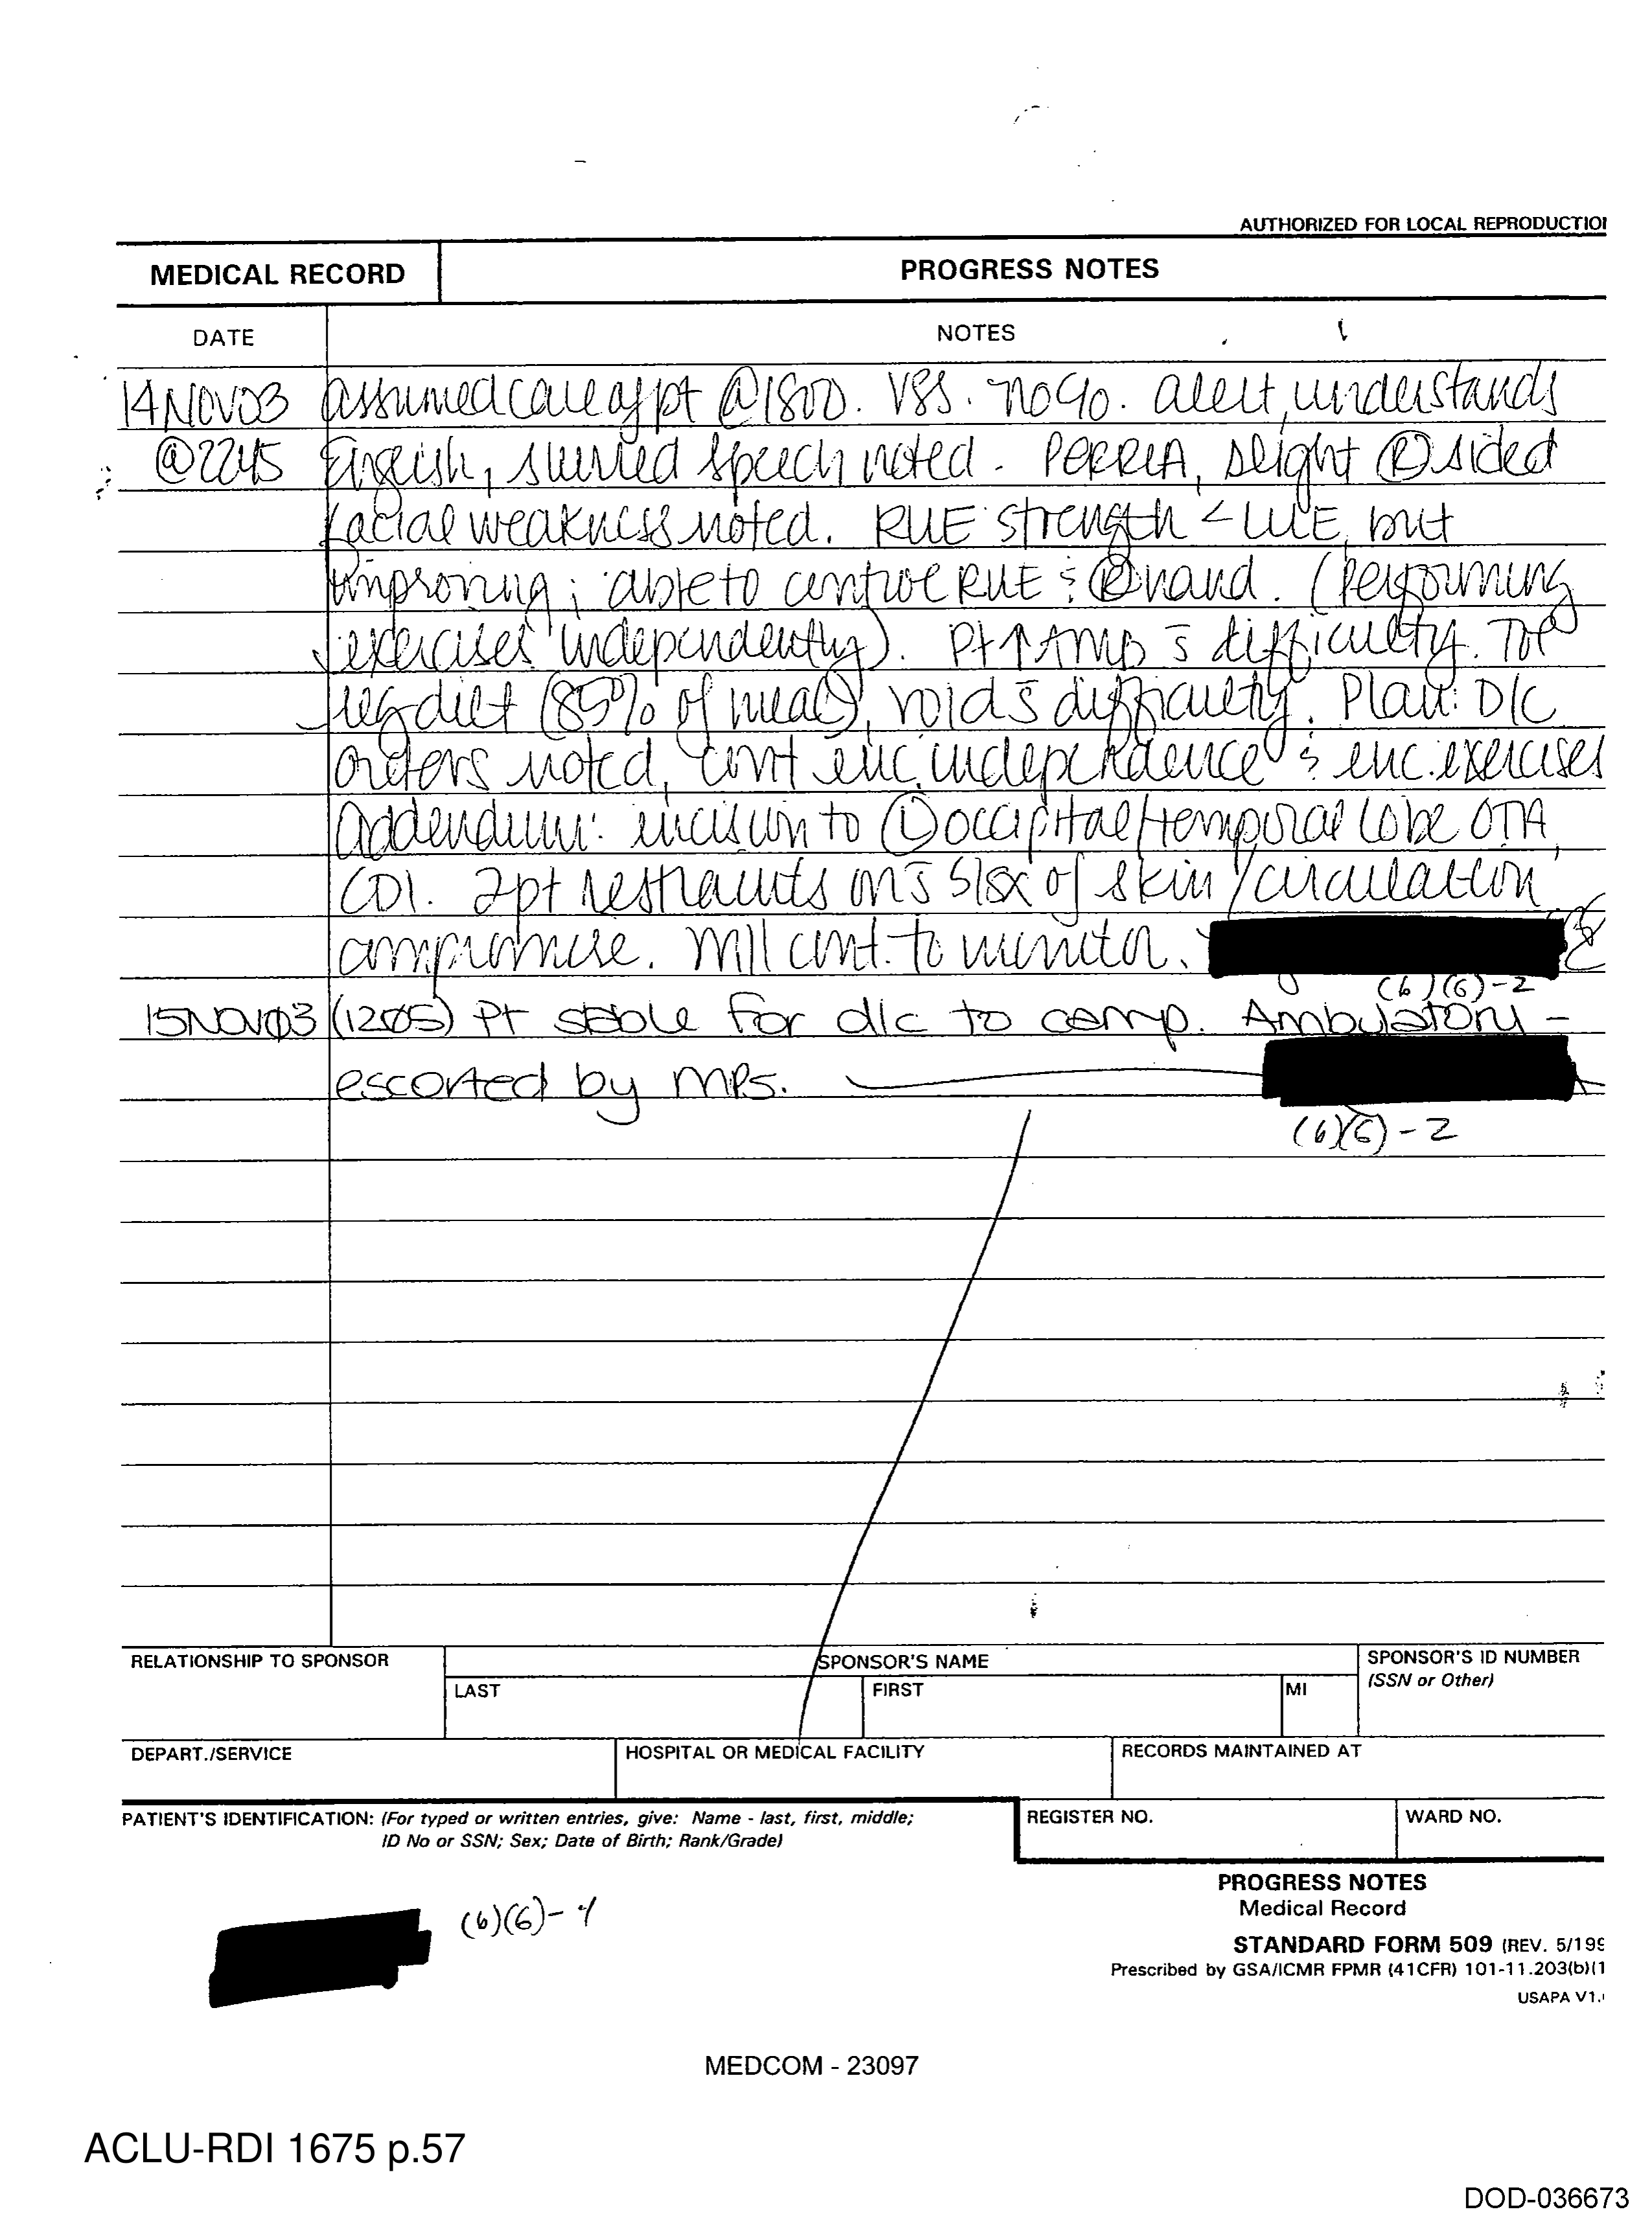 AUTHORIZED FOR LOCAL REPRODUCTIO
MEDICAL RECORD
PROGRESS NOTES
DATE
NOTES
14NOV03 assumed care of pt @1800. VSS. no c/o. alert, understands
@2245 English, slurred speech noted. PERRLA, slight Ⓡ sided
facial weakness noted. RUE strength < LUE, but
improving; able to control RUE & Ⓡ hand. (Performing
exercises independently). Pt ↑ AMB s̄ difficulty. Tol
reg diet (85% of meal), void s̄ difficulty. Plan: D/C
orders noted, cont enc independence & enc. exercises
Addendum: incision to Ⓛ occipital/temporal lobe OTA,
CDI. 2pt restraints on s̄ s/sx of skin/circulation
compromise. Will cont. to monitor.
(6)(6)-2
15NOV03 (1205) Pt stable for d/c to camp. Ambulatory -
escorted by MPs.
(6)(6)-2
RELATIONSHIP TO SPONSOR
SPONSOR'S NAME
SPONSOR'S ID NUMBER
(SSN or Other)
LAST
FIRST
MI
DEPART./SERVICE
HOSPITAL OR MEDICAL FACILITY
RECORDS MAINTAINED AT
PATIENT'S IDENTIFICATION: (For typed or written entries, give: Name - last, first, middle;
ID No or SSN; Sex; Date of Birth; Rank/Grade)
REGISTER NO.
WARD NO.
(6)(6)-4
PROGRESS NOTES
Medical Record
STANDARD FORM 509 (REV. 5/199
Prescribed by GSA/ICMR FPMR (41CFR) 101-11.203(b)(1
USAPA V1.
MEDCOM - 23097
ACLU-RDI 1675 p.57
DOD-036673